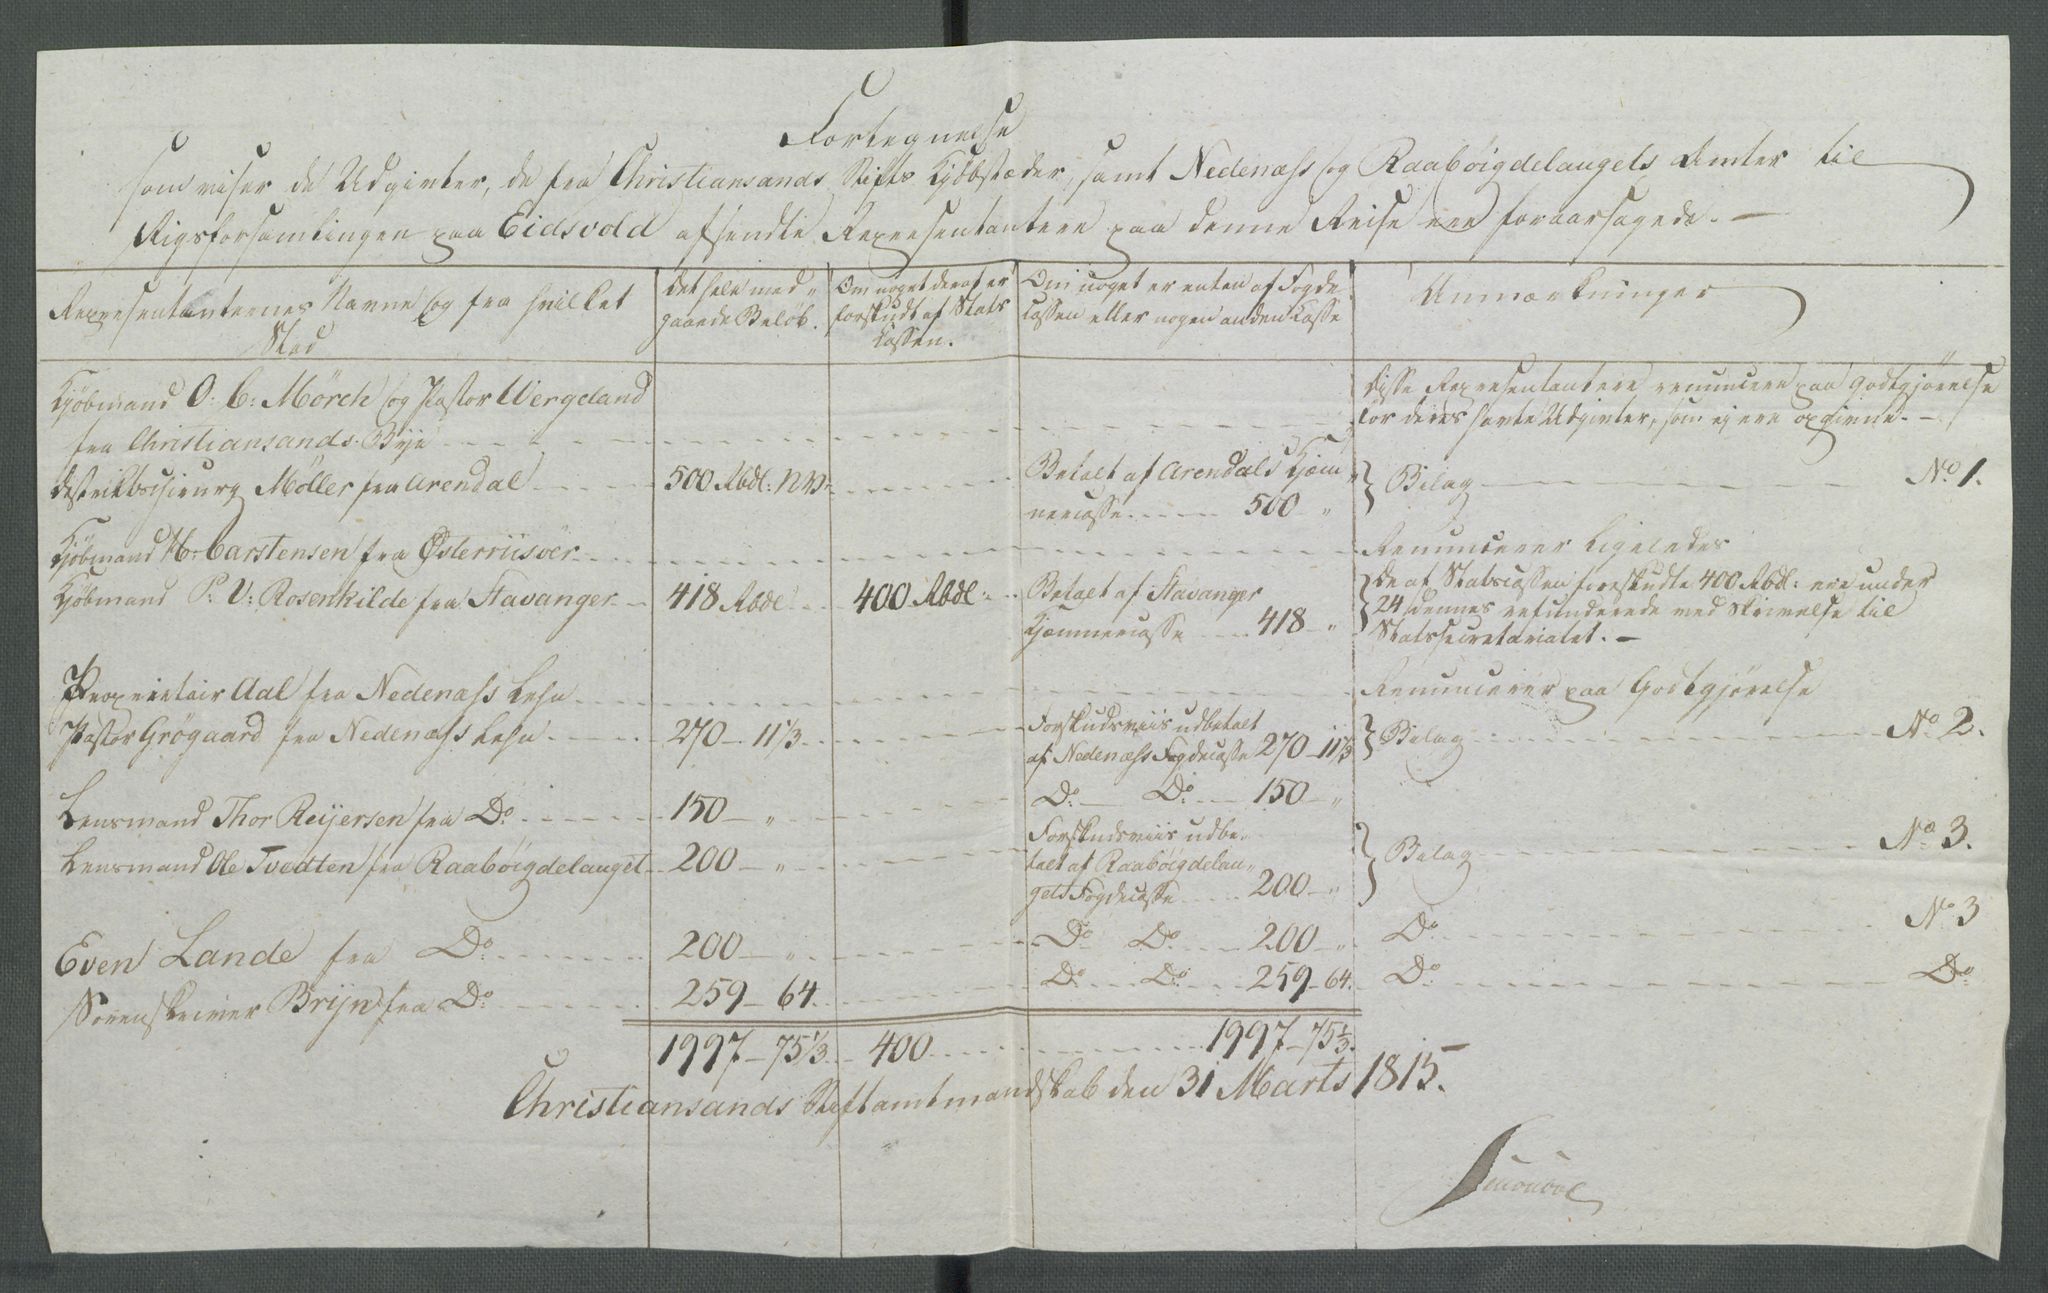 Fortegnelse
som viser de Udgivter, de fra Christiansands Stifts Kjöbstæder, samt Nedenæss og Raabøigdelaugets Amter til
Rigsforsamlingen paa Eidsvold afsendte Repræsentantere paa denne Reise ere foraarsagede.
Repræsentanternes Navne og fra hvilket
Stad
Det hele med-
gaaede Beløb.
Om noget deraf er
forskudt af Stats
Cassen.
Om noget er enten af Fogde
Cassen eller nogen anden Casse
Anmærkninger
Kjöbmand O. C. Mörch og Pastor Wergeland
fra Christiansands Bye
Disse Repræsentantere renuncere paa Godtgjörelse
for deres havte Udgivter, som ej ere opgivne.
Destriktschirurg Möller fra Arendal 500 Rbdl. N.V. Betalt af Arendals Kjæm-
nercasse 500 " Bilag No 1.
Kjöbmand H. Carstensen fra Østerriisøer Renuncerer ligeledes
Kjöbmand P. V. Rosenkilde fra Stavanger 418 Rbdl. 400 Rbdl. Betalt af Stavanger
Kjæmnercasse 418 "
De af Statscassen forskudte 400 Rbdl. ere under
24 dennes refunderede med Skrivelse til
Statssecretariatet.
Proprietair Aal fra Nedenæss Lehn Renuncerer paa Godtgjörelse
Pastor Grögaard fra Nedenæss Lehn 270 11 1/3 Forskudsviis udbetalt
af Nedenæss Fogdecasse 270 11 1/3 Bilag No 2.
Lensmand Thor Reijersen fra Do 150 " Do Do 150 "
Lensmand Ole Tvedten fra Raabøigdelauget 200 " Forskudsviis udbe-
talt af Raabøigdelau-
gets Fogdecasse 200 " Bilag No 3.
Even Lande fra Do 200 " Do Do 200 " Do No 3
Sorenskriver Brijn fra Do 259 64 Do Do 259 64 Do Do
1997 75 1/3 400 1997 75 1/3
Christiansands Stiftamtmandskab den 31 Marts 1815.